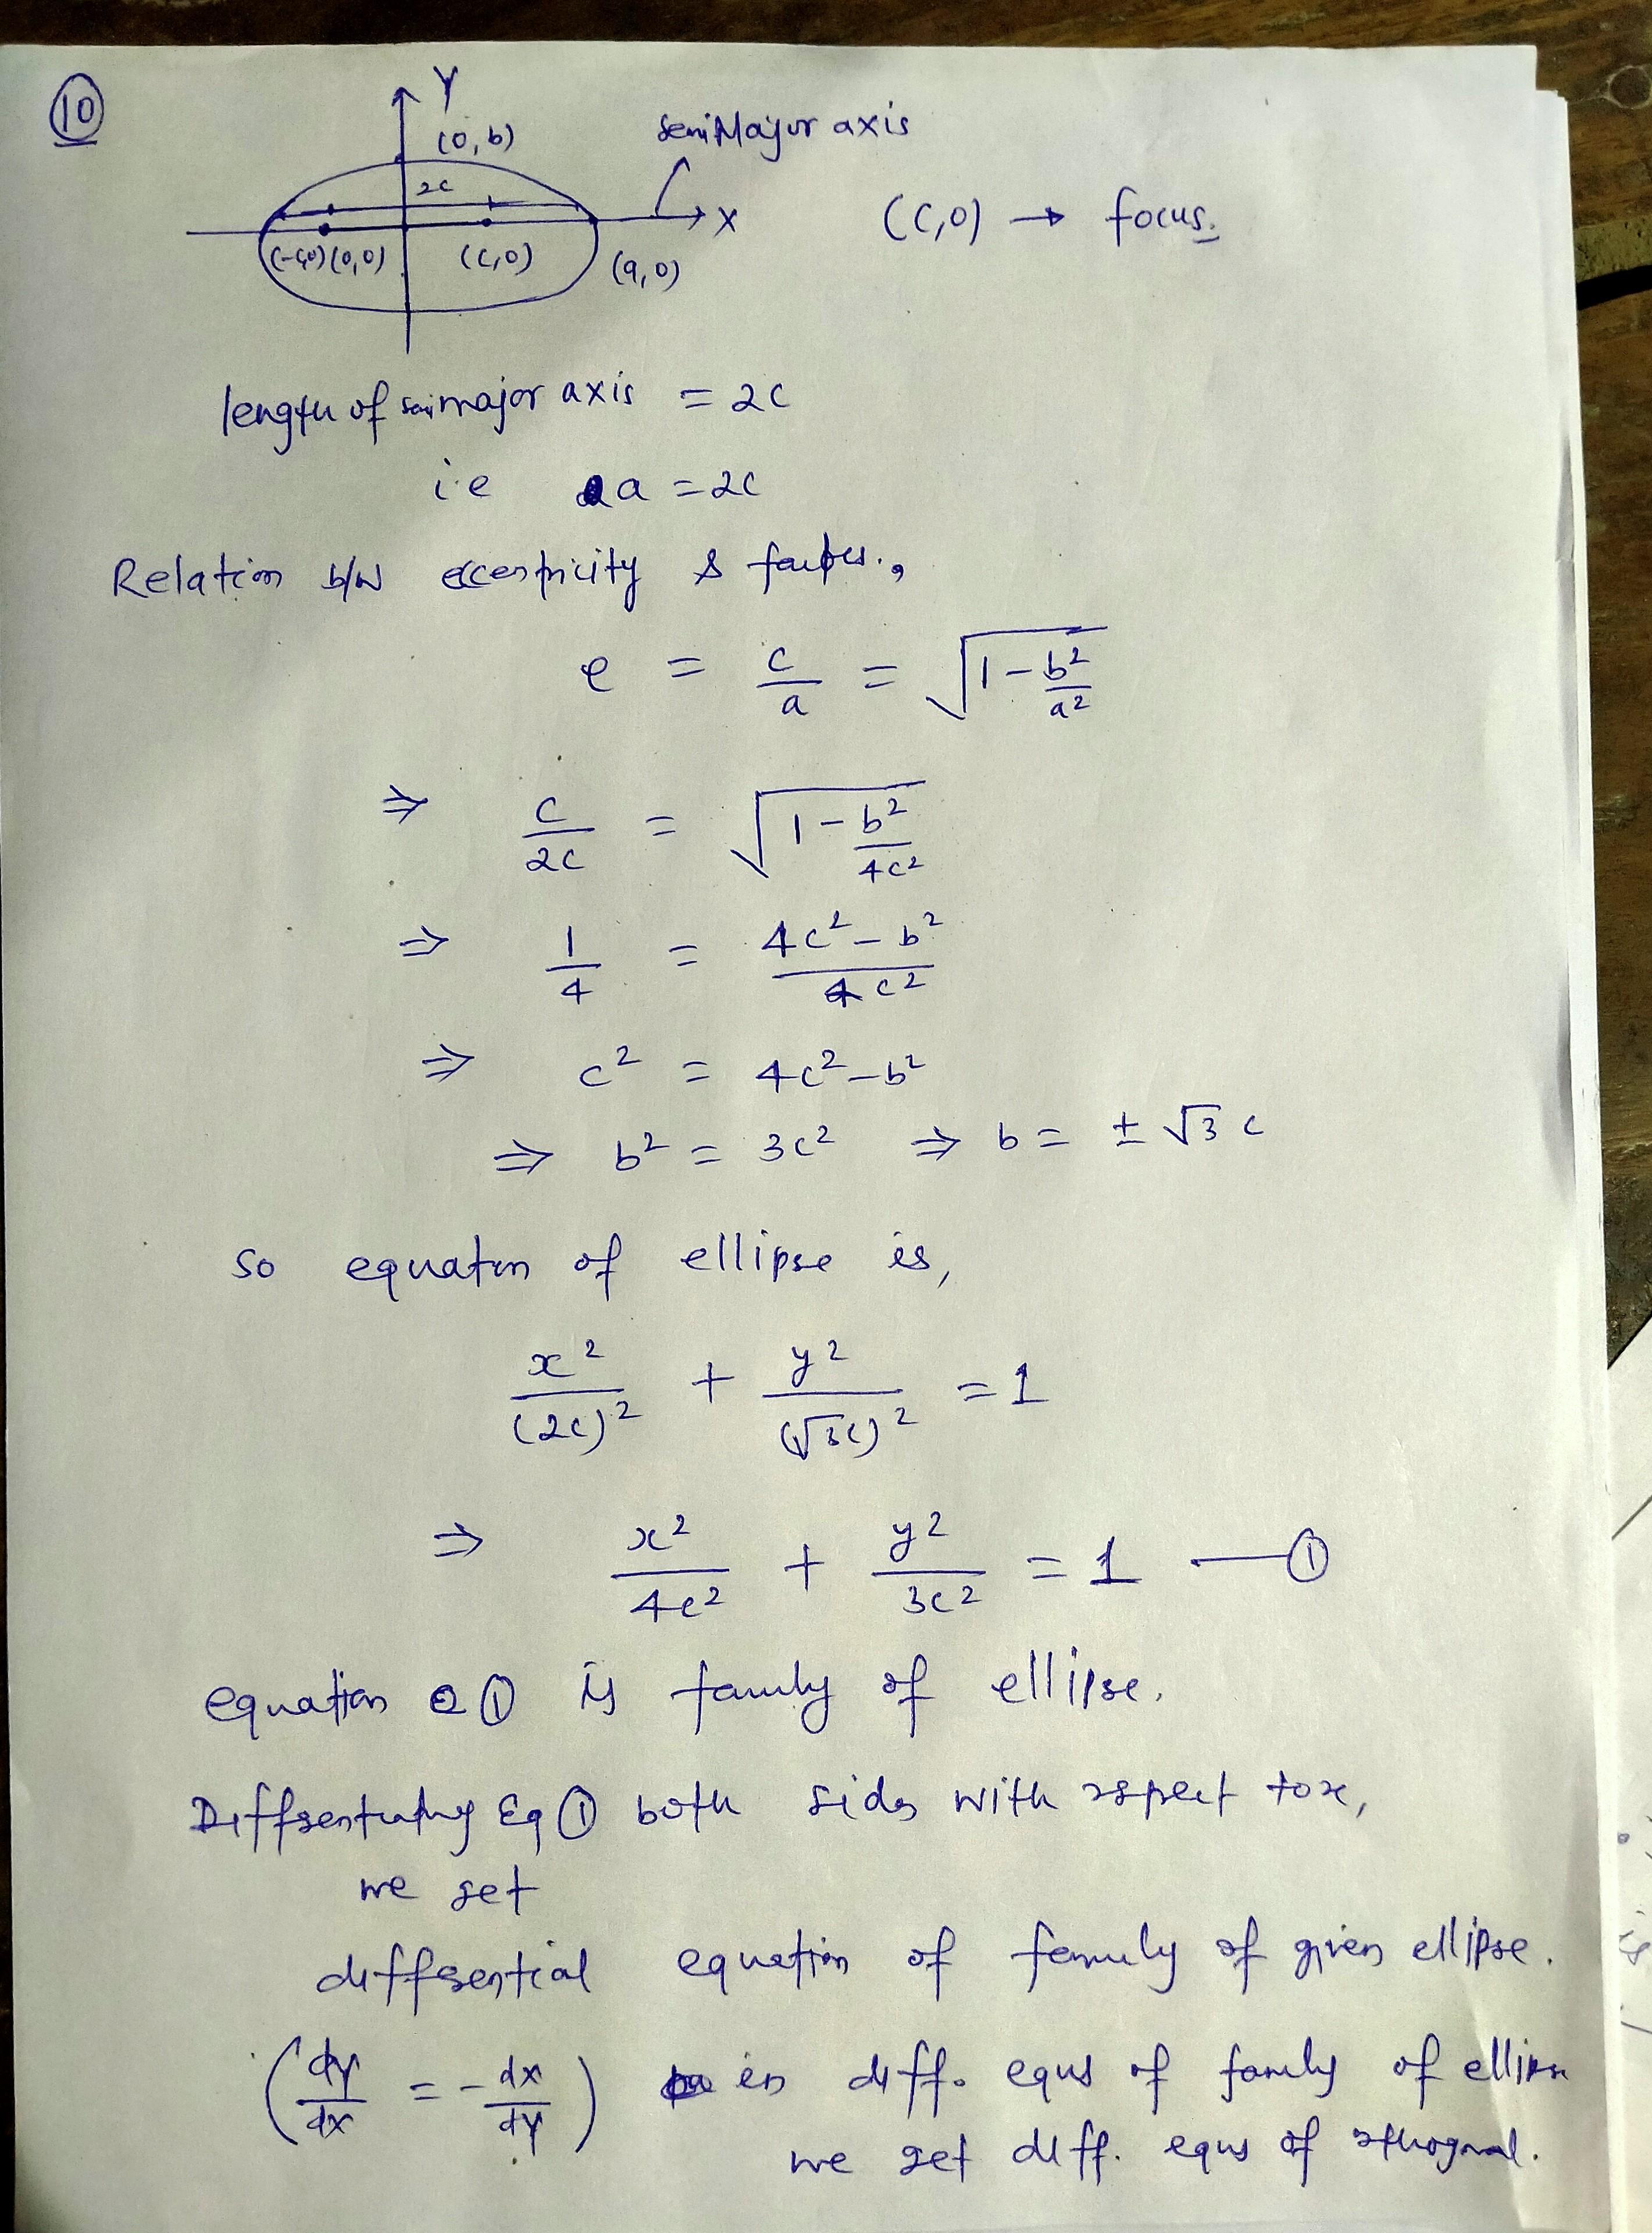 10
Y
(0, b)
semi Major axis
2c
X
(c,0) → focus.
(-c,0) (0,0) (c,0) (a,0)
length of semimajor axis = 2c
i.e a = 2c
Relation b/w eccentricity &
e = c/a = √(1 - b²/a²)
⇒ c/2c = √(1 - b²/4c²)
⇒ 1/4 = (4c² - b²)/4c²
⇒ c² = 4c² - b²
⇒ b² = 3c² ⇒ b = ± √3 c
so equation of ellipse is,
x²/(2c)² + y²/(√3c)² = 1
⇒ x²/4c² + y²/3c² = 1 — ①
equation ① is family of ellipse.
Differentiating Eq ① both sides with respect to x,
we get
differential equation of family of given ellipse.
(dy/dx = - dx/dy) in diff. equs of family of ellipse
we get diff. equs of orthogonal.